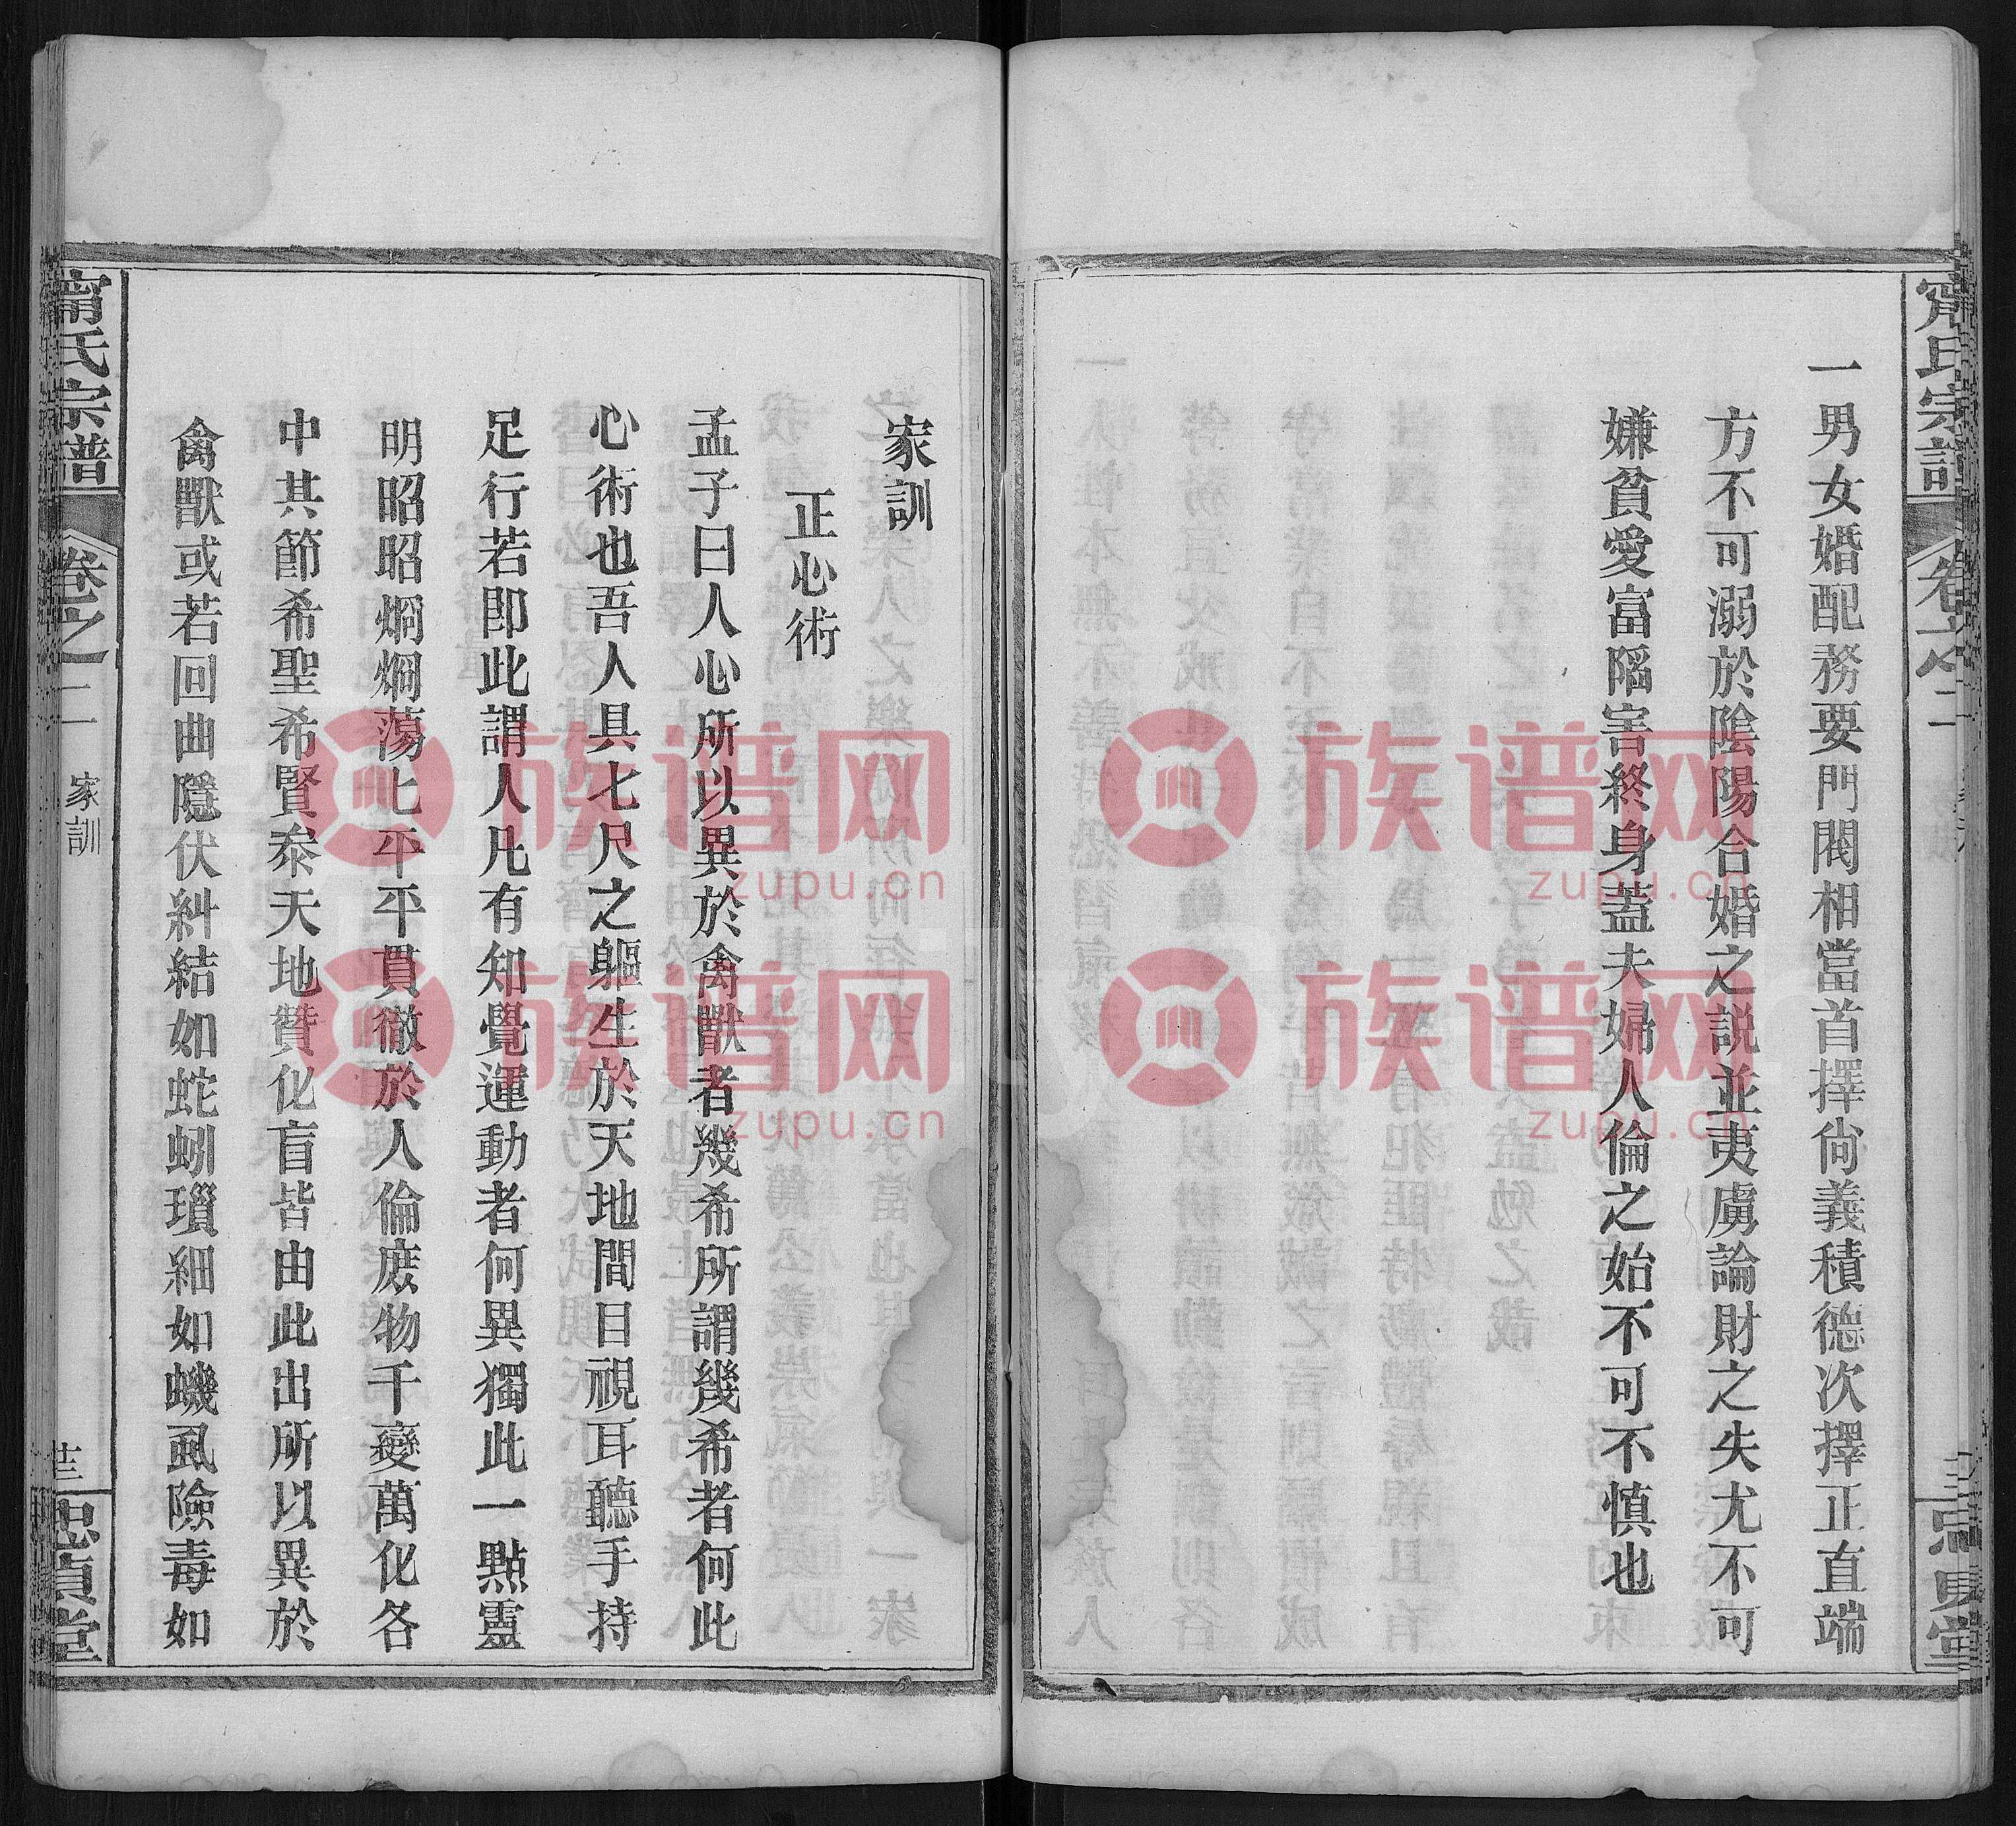 一男女婚配務要門閥相當首擇尙義積德次擇正直端
方不可溺於陰陽合婚之説並夷虜論財之失尤不可
嫌貧愛富陷害終身蓋夫婦人倫之始不可不慎也
家訓
正心術
孟子曰人心所以異於禽獸者幾希所謂幾希者何此
心術也吾人具七尺之軀生於天地間目視耳聽手持
足行若即此謂人凡有知覺運動者何異獨此一點靈
明昭昭烱烱蕩七平平貫徹於人倫庶物千變萬化各
中其節希聖希賢叅天地贊化盲皆由此出所以異於
禽獸或若回曲隱伏糾結如蛇蚓瑣細如蟣虱險毒如
甯氏宗譜
卷之二
家訓
忠貞堂
族谱网
zupu.cn
族谱网
zupu.cn
族谱网
zupu.cn
族谱网
zupu.cn